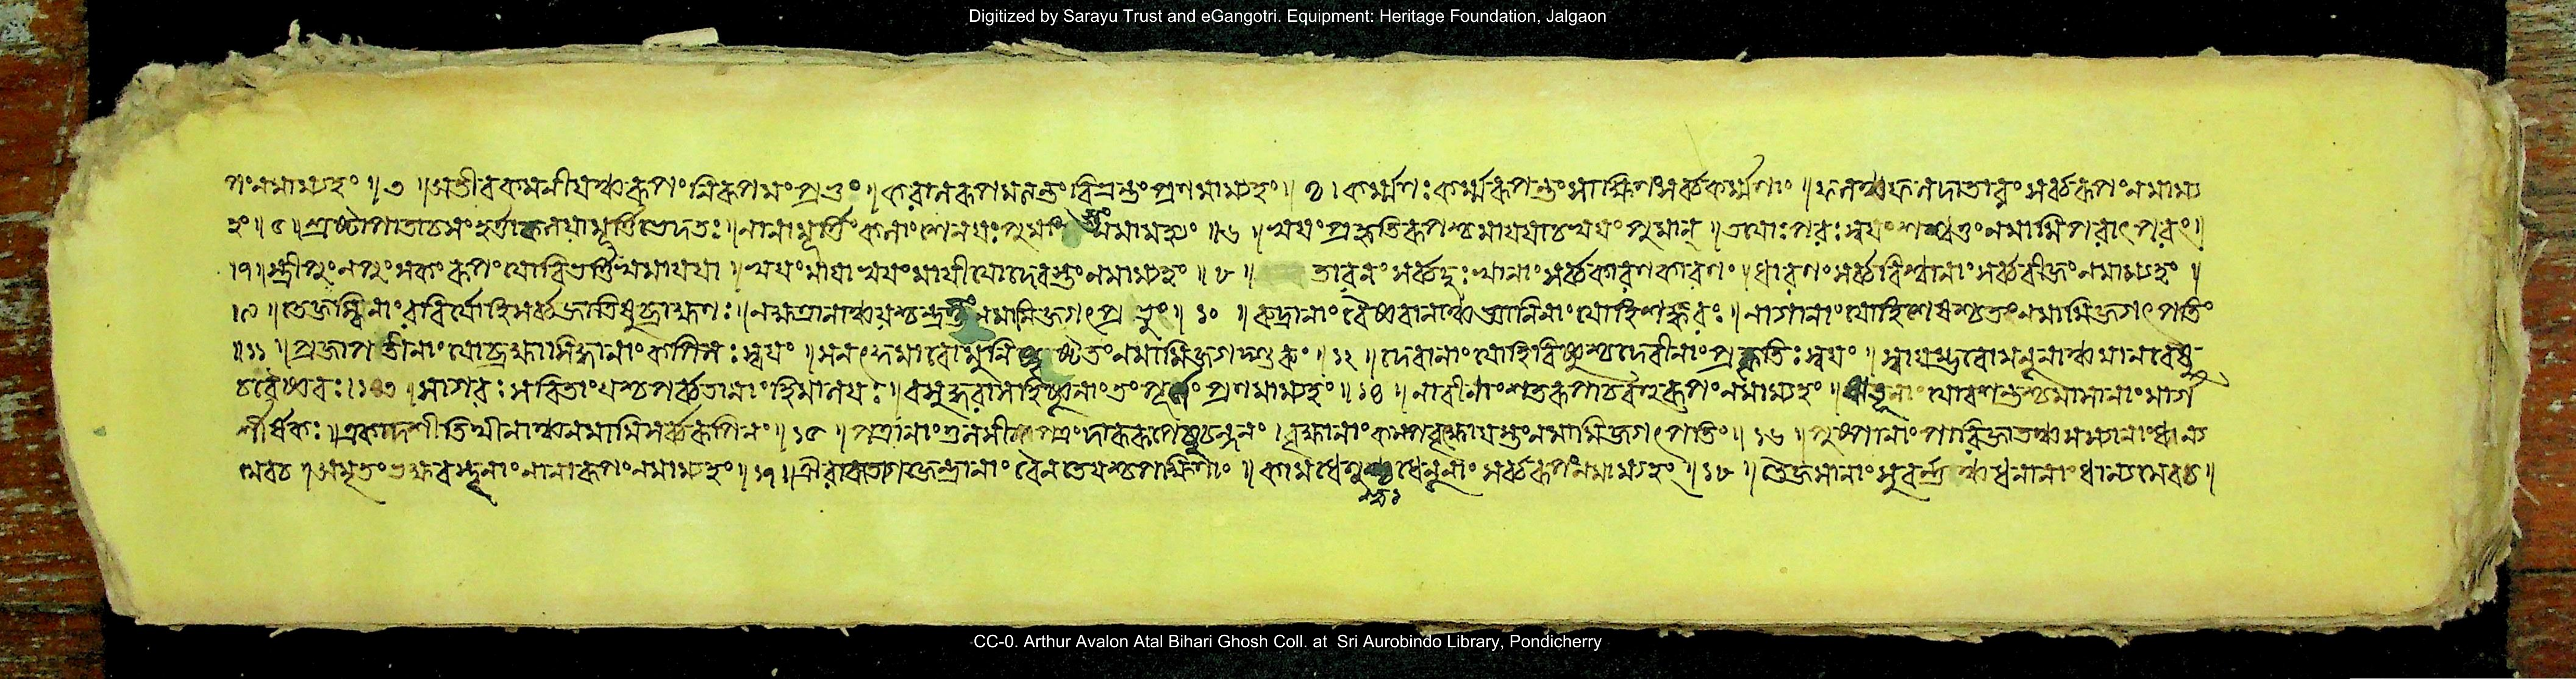 Digitized by Sarayu Trust and eGangotri. Equipment: Heritage Foundation, Jalgaon
পং নমাম্যহং ॥ ৩ ॥ অতীবকমনীয়ঞ্চ রূপং নিরূপমং প্রভুং । করালরূপমত্যন্তং বিভ্রন্তং প্রণমাম্যহং ॥ ৪ । কর্ম্মণঃ কর্ম্মরূপন্তং সাক্ষিণং সর্ব্বকর্ম্মণাং ॥ ফলঞ্চ ফলদাতারং সর্ব্বরূপং নমাম্য
হং ॥ ৫ ॥ স্রষ্টা পাতা চ সং হর্ত্তা কলয়া মূর্ত্তিভেদতঃ ॥ নানামূর্ত্তিঃ কলাংশেন যঃ পুমাং নমাম্যহং ॥ ৬ ॥ স্বয়ং প্রকৃতিরূপশ্চ মায়য়া চ স্বয়ং পুমান্ ॥ তয়োঃ পরঃ স্বয়ং শশ্বত্তং নমামি পরাৎপরং ॥
। ৭ ॥ স্ত্রীপুং নপুংসকং রূপং যো বিভর্ত্তি স্বমায়য়া ॥ স্বয়ং মায়া স্বয়ং মায়ী যো দেবস্তং নমাম্যহং ॥ ৮ ॥ তারণং সর্ব্বদুঃখানাং সর্ব্বকারণকারণং ॥ ধারণং সর্ব্ববিশ্বানাং সর্ব্ববীজং নমাম্যহং ॥
। ৯ ॥ তেজস্বিনাং রবির্যো হি সর্ব্বজাতিষু ব্রাহ্মণঃ ॥ নক্ষত্রানাঞ্চ যশ্চন্দ্রস্তং নমামি জগৎপ্রভুং ॥ ১০ ॥ রুদ্রানাং বৈষ্ণবানাঞ্চ জ্ঞানিনাং যো হি শঙ্করঃ ॥ নাগানাং যো হি শেষশ্চ তং নমামি জগৎপতিং
॥ ১১ ॥ প্রজাপতীনাং যো ব্রহ্মা সিদ্ধানাং কপিলঃ স্বয়ং ॥ সনৎকুমারো মুনিষু তং নমামি জগদ্গুরুং ॥ ১২ ॥ দেবানাং যো হি বিষ্ণুশ্চ দেবীনাং প্রকৃতিঃ স্বয়ং ॥ স্বায়ম্ভুবো মনূনাঞ্চ মানবেষু
চ বৈষ্ণবঃ । ১৩ ॥ সাগরঃ সরিতাং যশ্চ পর্ব্বতানাং হিমালয়ঃ ॥ বসুন্ধরা সহিষ্ণূনাং তং প্রণমাম্যহং ॥ ১৪ ॥ নারীনাং শতরূপা চ বহুরূপং নমাম্যহং ॥ ঋতূনাং যো বসন্তশ্চ মাসানাং মার্গ
শীর্ষকঃ ॥ একাদশী তিথীনাঞ্চ নমামি সর্ব্বরূপিনং ॥ ১৫ ॥ পত্রানাং তুলসীপত্রং দারুরূপেষু চন্দনং । বৃক্ষানাং কল্পবৃক্ষো যস্তং নমামি জগৎপতিং ॥ ১৬ ॥ পুষ্পানাং পারিজাতশ্চ সস্যানাং ধান্য
মেব চ ॥ অমৃতং ভক্ষবস্তূনাং নানারূপং নমাম্যহং ॥ ১৭ ॥ ঐরাবতো গজেন্দ্রানাং বৈনতেয়শ্চ পক্ষিণাং ॥ কামধেনুশ্চ ধেনূনাং সর্ব্বরূপং নমাম্যহং ॥ ১৮ ॥ তৈজসানাং সুবর্ণঞ্চ ধনানাং ধান্যমেব চ ॥
CC-0. Arthur Avalon Atal Bihari Ghosh Coll. at Sri Aurobindo Library, Pondicherry